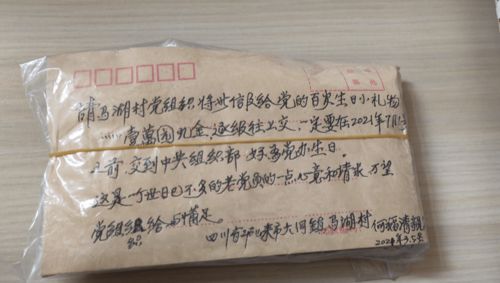 请马湖村党组织将此信段给党的百岁生日小礼物
壹萬园礼金,逐级往上交,一定要在2021年7月1
之前交到中央组织部 好為党办生日.
这是一个世日已不多的老党员的一点心意和请求,万望
党组织给与满足.
四川省 大河镇马湖村
2021年3.5号